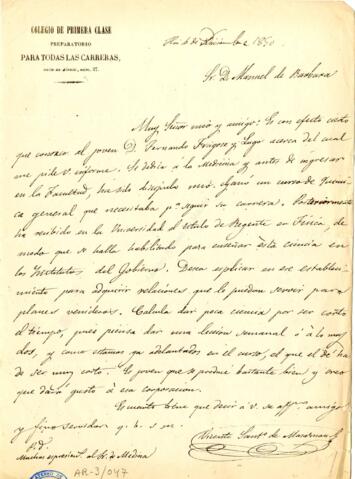 COLEGIO DE PRIMERA CLASE
PREPARATORIO
PARA TODAS LAS CARRERAS,
Hoy 6 de Diciembre 1850
Sr. D. Manuel de
Muy Señor mio y amigo: Es con efecto cierto
que conozco al joven D. Fernando y Lugo acerca del cual
me pide V. informe. Se dedica á la Medicina y antes de ingresar
en la Facultad, ha sido discipulo mio, ganó un curso de Quimi-
ca general que necesitaba pª seguir su carrera. Posteriormente
ha recibido en la Universidad el titulo de Regente en Fisica, de
modo que se halla habilitado para enseñar esta ciencia en
los Institutos del Gobierno. Desea esplicar en ese estableci-
miento para adquirir relaciones que le puedan servir para
planes venideros. Calcula dar poca ciencia por ser corto
el tiempo, pues piensa dar una leccion semanal ó á lo mas
dos, y como estamos ya adelantados en el curso, el que el dé ha
de ser muy corto. El joven se produce bastante bien y creo
que dará gusto á esa corporacion.
Es cuanto tiene que decir á V. su affmo. amigo
y fino servidor q. b. s. m.
Vicente Sant.
P.D.
Muchas espresiones al Sr. de Medina
AR-3/047